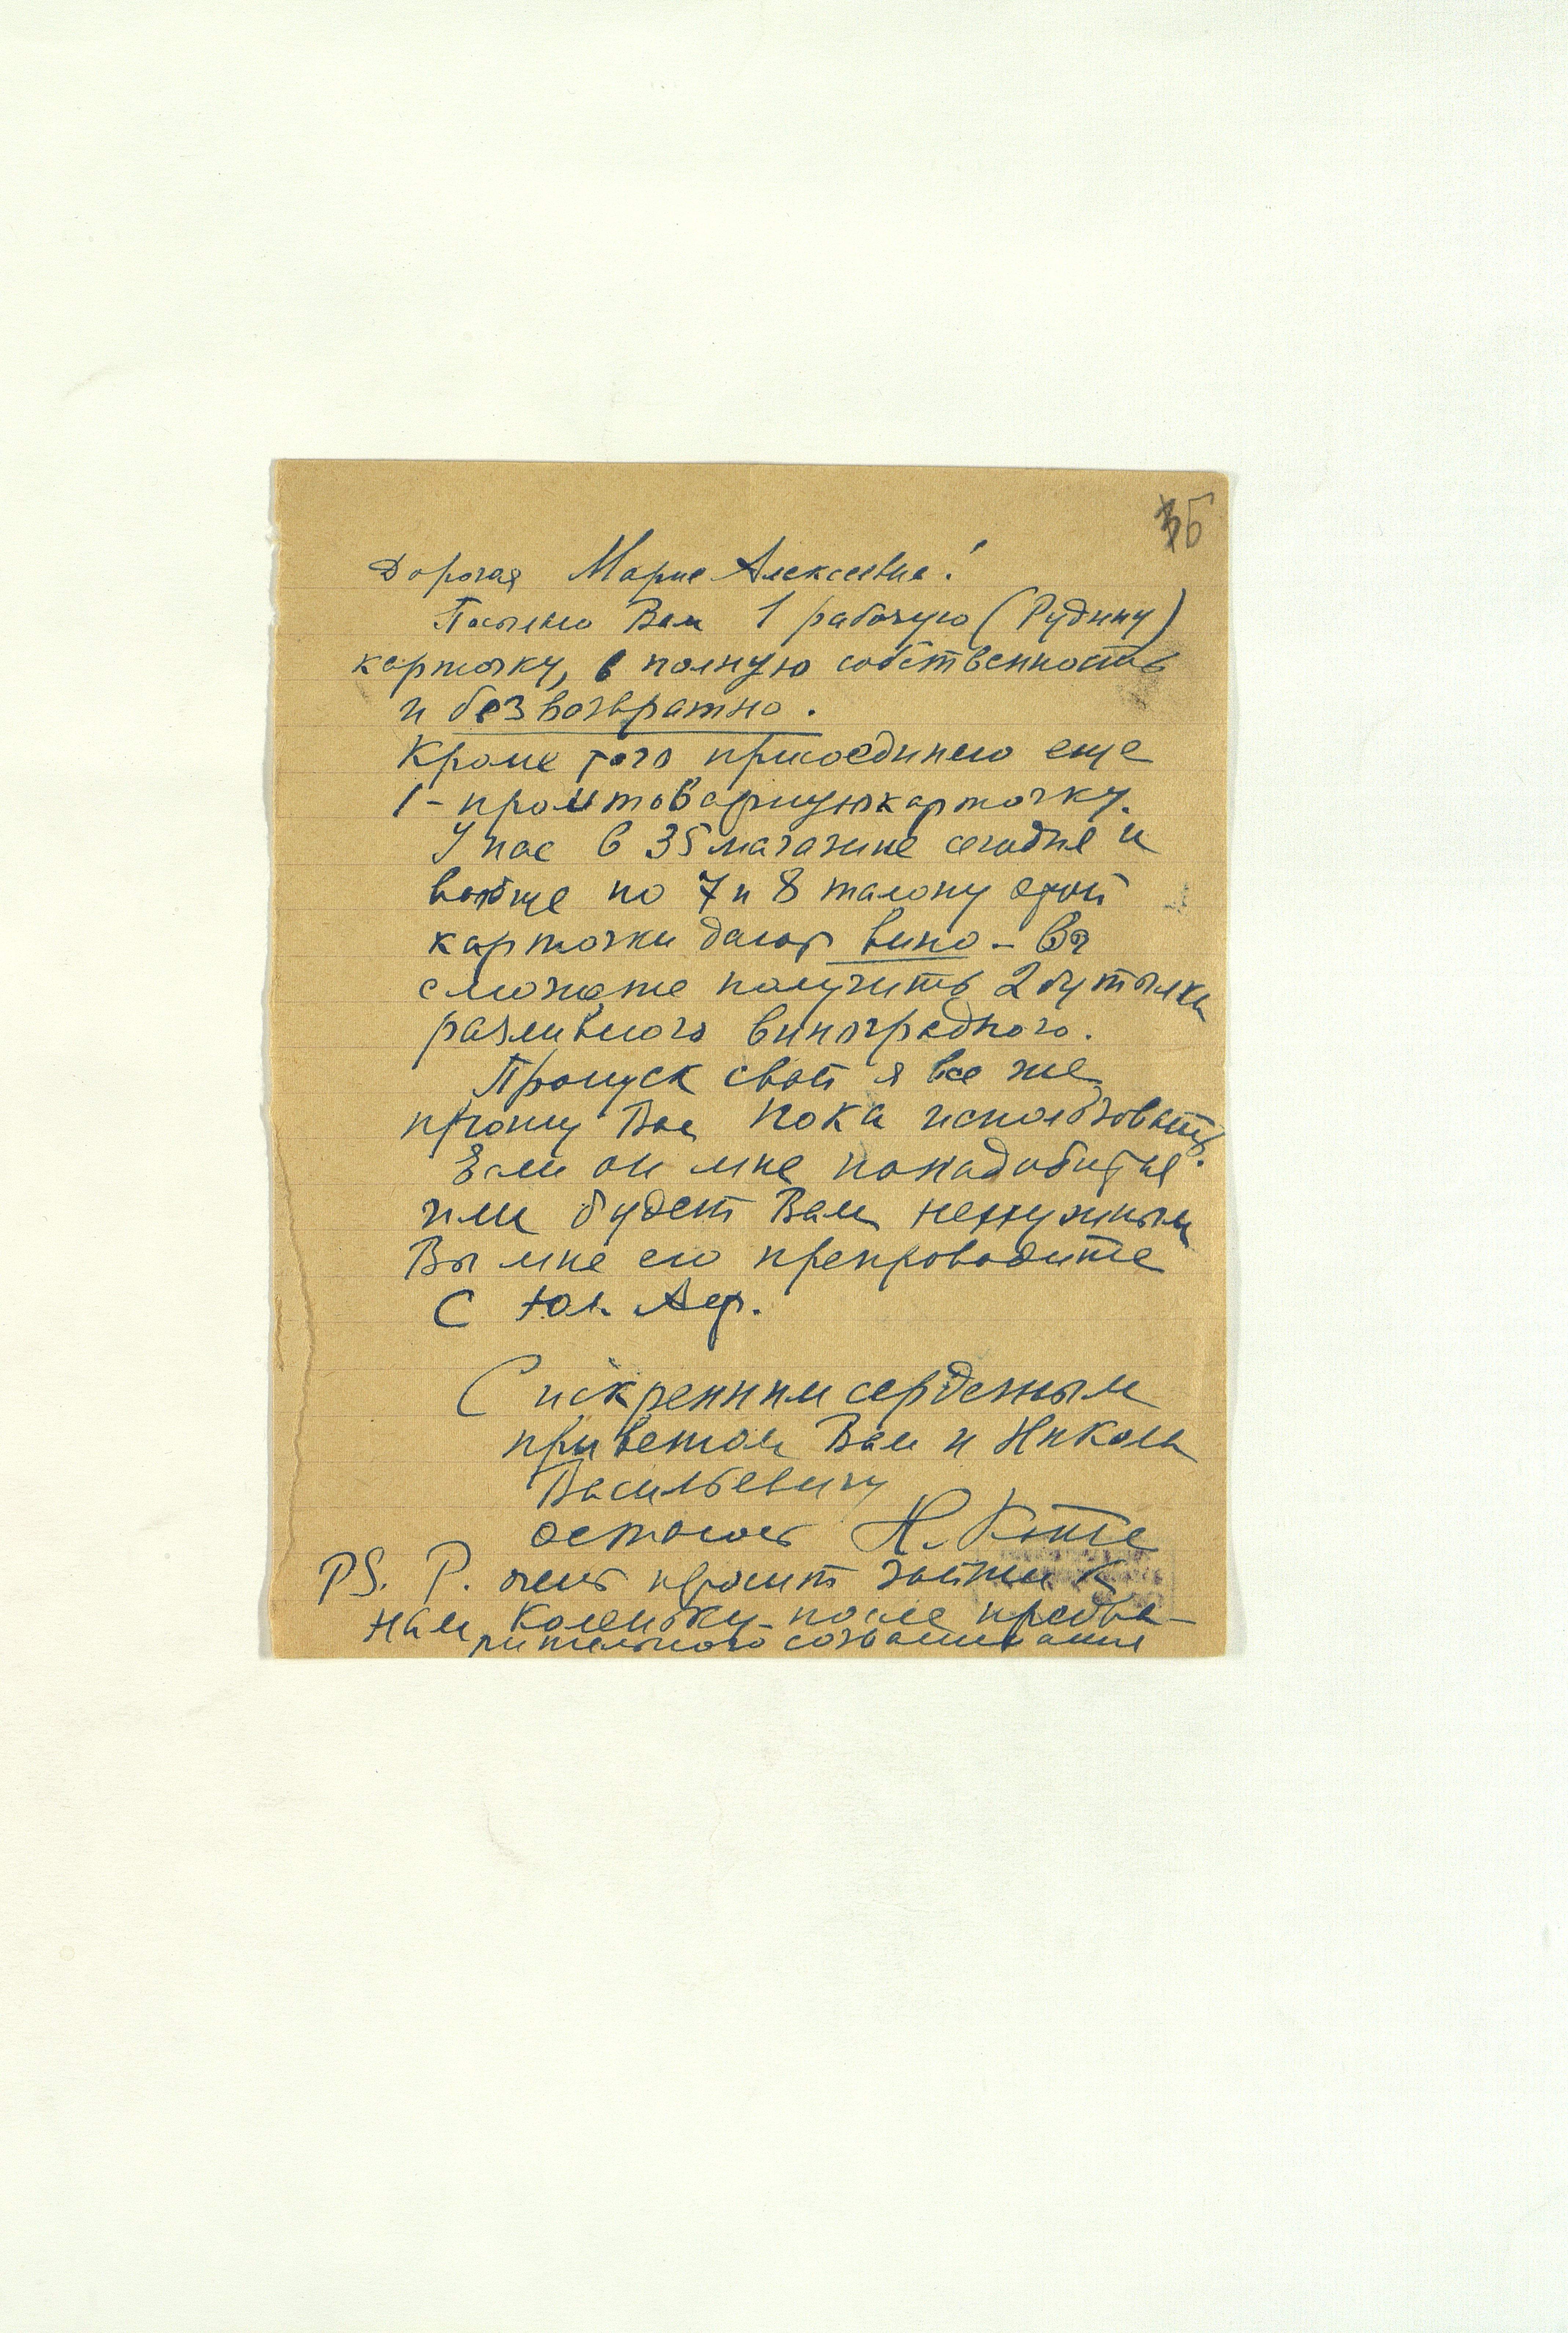 Дорогая Мария Алексеевна!
Посылаю Вам 1 рабочую (Рудину)
карточку, в полную собственность
и безвозвратно.
Кроме того присоединяю еще
1 - промтоварную карточку.
У нас в 35 магазине сегодня и
вообще по 7 и 8 талону этой
карточки дают вино - Вы
сможете получить 2 бутылки
разливного виноградного.
Пропуск свой я все же
прошу Вас пока использовать.
Если он мне понадобится
или будет Вам ненужным
Вы мне его препроводите
С Юл.
С искренним сердечным
приветом Вам и Николаю
Васильевичу
остаюсь Н.
PS. Р. очень просит зайти к
нам Коленьку - после предва-
рительного созванивания